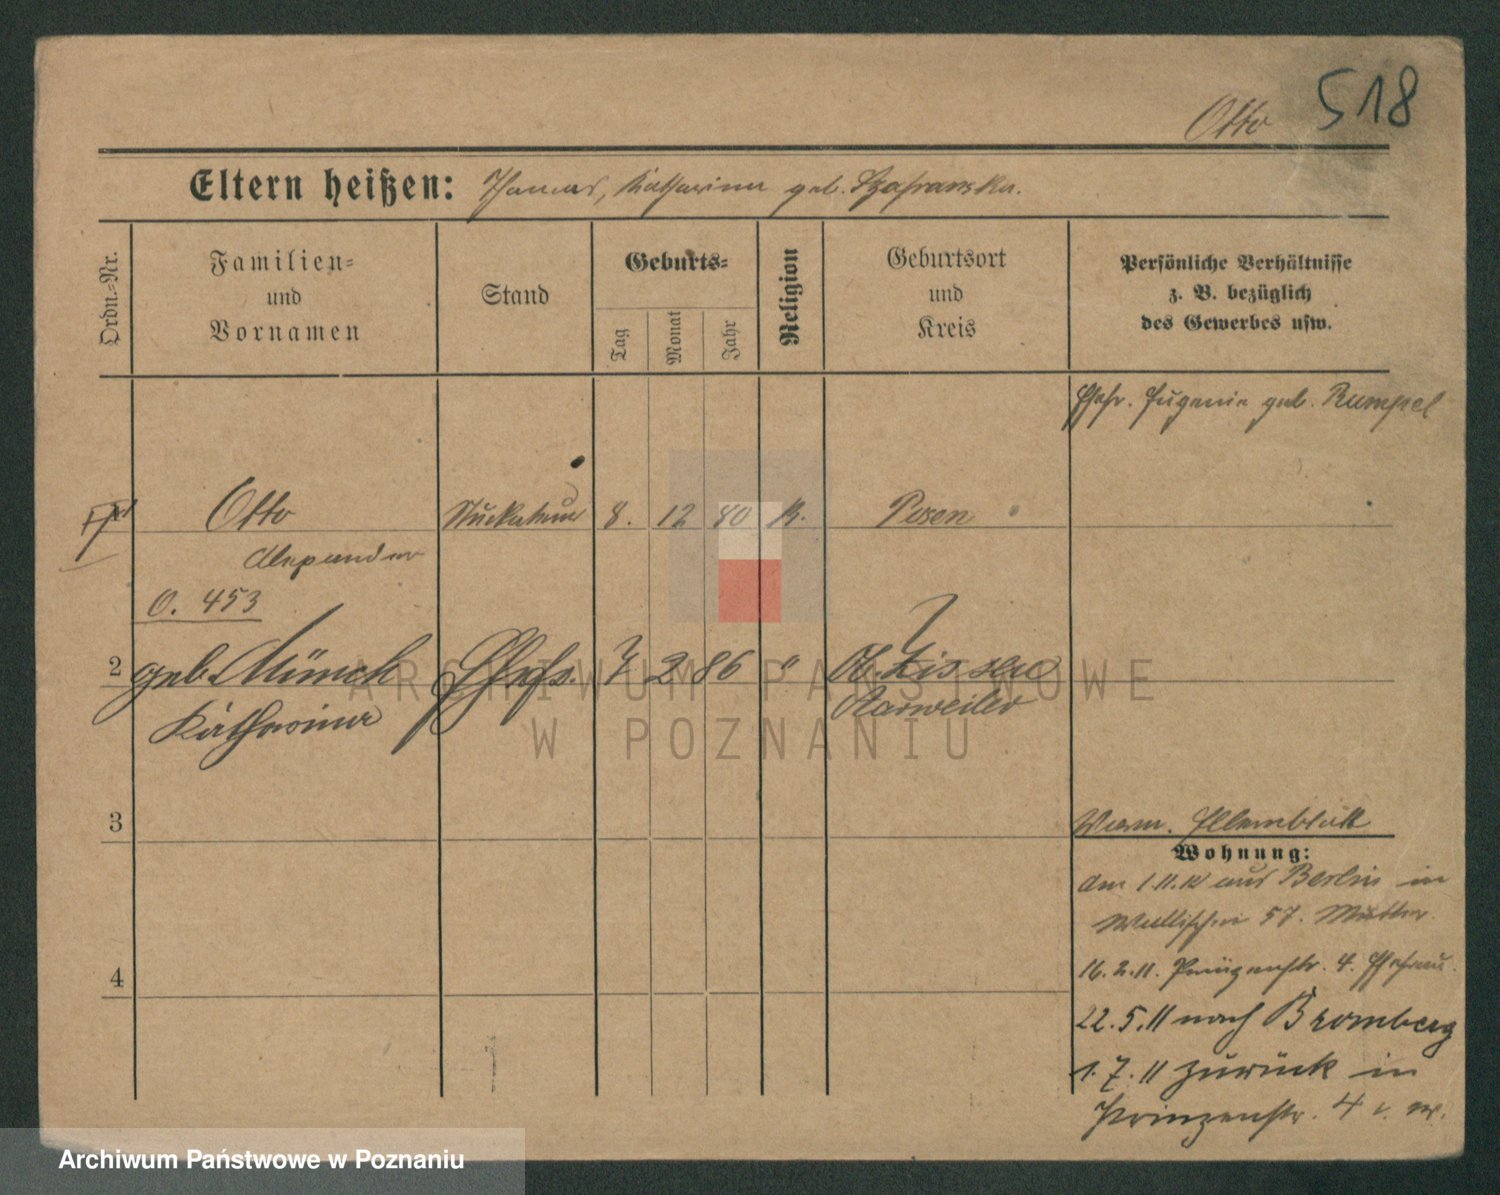 Otto 518
Eltern heißen: Thomas, Katharina geb. Szafranska.
Ordn.-Nr.
Familien-
und
Vornamen
Stand
Geburts-
Tag
Monat
Jahr
Religion
Geburtsort
und
Kreis
Persönliche Verhältnisse
z. B. bezüglich
des Gewerbes usw.
Ehefr. Eugenie geb. Rumpel
Otto Stuckateur 8. 12 80 k. Posen
Alexander
O. 453
2 geb. Münch Ehefr. 7 2 86 " Ob. Zissen
Katharina Aarweiler
3
Wwe.
Wohnung:
Am 1.11.10 aus Berlin in
Wallischei 57. Mutter.
4
16.2.11. Prinzenstr. 4. Ehefrau.
22.5.11 nach Bromberg
1.7.11 zurück in
Prinzenstr. 4
ARCHIWUM PAŃSTWOWE
W POZNANIU
Archiwum Państwowe w Poznaniu